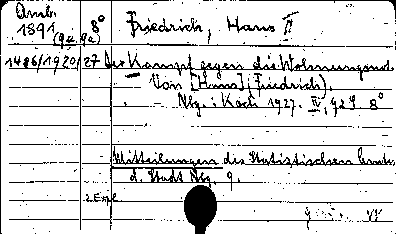 Amb. 8° Friedrich, Hans II
1891
(9a. 9a)
1486/1920/27 Der Kampf gegen die Wohnungsnot.
Von [Hans] Friedrich).
Nbg.: Koch 1927. IV, 92 S. 8°
Mitteilungen des Statistischen Amtes
d. Stadt Nbg. 9.
2. Expl.